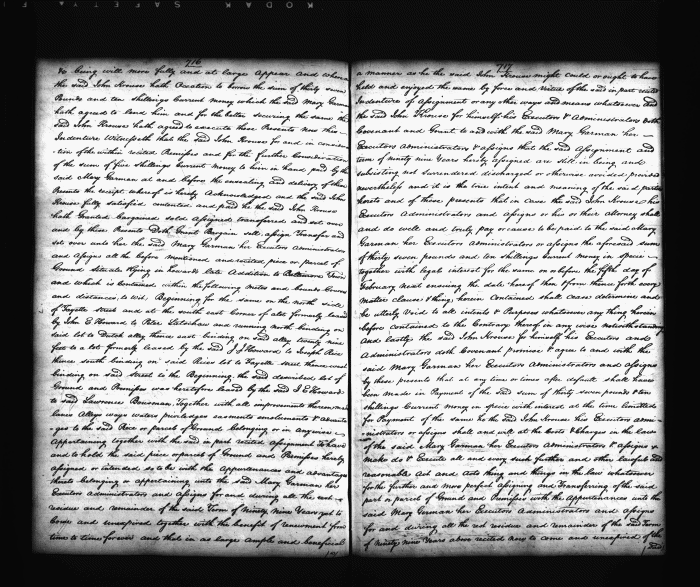 KODAK SAFETY
716
to being will more fully and at large appear and whereas
the said John Krouse hath Occasion to borrow the sum of thirty seven
Pounds and ten shillings Current money which the said Mary German
hath agreed to loan him and for the better securing the same the
said John Krouse hath agreed to execute these Presents Now this
Indenture Witnesseth that the said John Krouse for and in consideration
of the within recited Premises and for the further Consideration
of the sum of five shillings Current money to him in hand paid by the
said Mary German at and before the ensealing and delivery of these
Presents the receipt whereof is hereby Acknowledged and the said John
Krouse fully satisfied contented and paid he the said John Krouse
hath Granted Bargained sold Assigned transferred and set over
and by these Presents Doth Grant Bargain sell assign Transfer and
set over unto her the said Mary German her Executors Administrators
and Assigns all the before mentioned and recited piece or parcel of
Ground Situate Lying in Howards late Addition to Baltimore Town
and which is contained within the following metes and bounds Courses
and distances, to wit, Beginning for the same on the north side
of Fayette street and at the south east Corner of a lot formerly leased
by John E Howard to Peter and running north binding on
said lot to Dutch alley thence east binding on said alley twenty nine
feet to a lot formerly leased by the said J E Howard to Joseph Rice
thence south binding on said Rices lot to Fayette street thence west
binding on said street to the Beginning, the said described lot of
Ground and Premises was heretofore leased by the said J E Howard
to said Lawrence Bousman, Together with all improvements thereon made
lanes Alleys ways waters priviledges easments emoluments & advantages
to the said Piece or parcel of Ground belonging or in any wise
Appertaining together with the said in part recited Assignment To have
and to hold the said piece or parcel of Ground and Premises hereby
assigned or intended so to be with the Appurtenances and advantages
thereto belonging or appertaining unto the said Mary German her
Executors Administrators and Assigns for and during all the rest
residue and remainder of the said Term of Ninety Nine Years yet to
come and unexpired together with the benefit of renewment from
time to time forever and that in as large ample and beneficial
717
a manner as he the said John Krouse might could or ought to have
held and enjoyed the same by force and Virtue of the said in part recited
Indenture of Assignment or any other ways and means whatsoever And
the said John Krouse for himself his Executors & Administrators doth
Covenant and Grant to and with the said Mary German her
Executors Administrators & assigns that the said Assignment and
term of ninety nine Years hereby assigned are still in being and
subsisting not surrendered discharged or otherwise avoided, provided
nevertheless and it is the true intent and meaning of the said parties
hereto and of these presents that in case the said John Krouse his
Executors Administrators and assigns or his or their attorney shall
and do well and truly pay or cause to be paid to the said Mary
German her Executors Administrators or assigns the aforesaid sum
of thirty seven pounds and ten shillings current money in specie
together with legal interest for the same on or before the fifth day of
February next ensuing the date hereof then & from thence forth every
matter clause & thing herein Contained shall cease determine and
be utterly Void to all intents & Purposes whatsoever any thing herein
before contained to the Contrary thereof in any wise notwithstanding
and lastly the said John Krouse for himself his Executors and
Administrators doth Covenant promise & agree to and with the
said Mary German her Executors Administrators and assigns
by these presents that at any time or times after default shall have
been made in Payment of the said sum of thirty seven pounds & ten
shillings Current money in specie with interest at the time limitted
for Payment of the same he the said John Krouse his Executors Administrators
or assigns shall and will at the Costs & Charges in the law
of the said Mary German her Executors Administrators & assigns
make do & Execute all and every such further and other lawful and
reasonable Act and Acts thing and things in the law whatsoever
for the further and more perfect assigning and transferring of the said
part or parcel of Ground and Premises with the Appurtenances unto the
said Mary German her Executors Administrators and assigns
for and during all the rest residue and remainder of the said Term
of ninety nine Years above recited now to come and unexpired of the
said